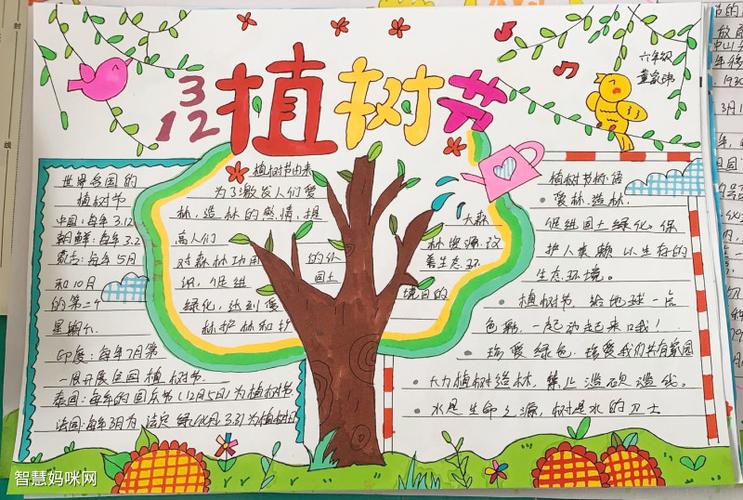 3
12
植树节
六年级
世界各国的
植树节
中国:每年3.12
朝鲜:每年3.2
每年5月
和10月
的第二个
星期六
印度:每年7月第
一周开展全国植树节
泰国:每年的国庆节(12月5日)为植树节
法国:每年3月为法定绿化月,3.31为植树日
植树节由来
为了激发人们爱
林、造林的感情,提
高人们
对森林功用的认
识,促进国土
绿化,达到爱
林护林和扩
大森
林资源,改
善生态环
境目的
植树节标语
爱林、造林,
促进国土绿化,保
护人类赖以生存的
生态环境。
植树节,给地球一点
色彩,一起动起来吧!
珍爱绿色,珍爱我们共有家园
大力植树造林,禁止滥砍滥伐。
水是生命之源,树是水的卫士
智慧妈咪网